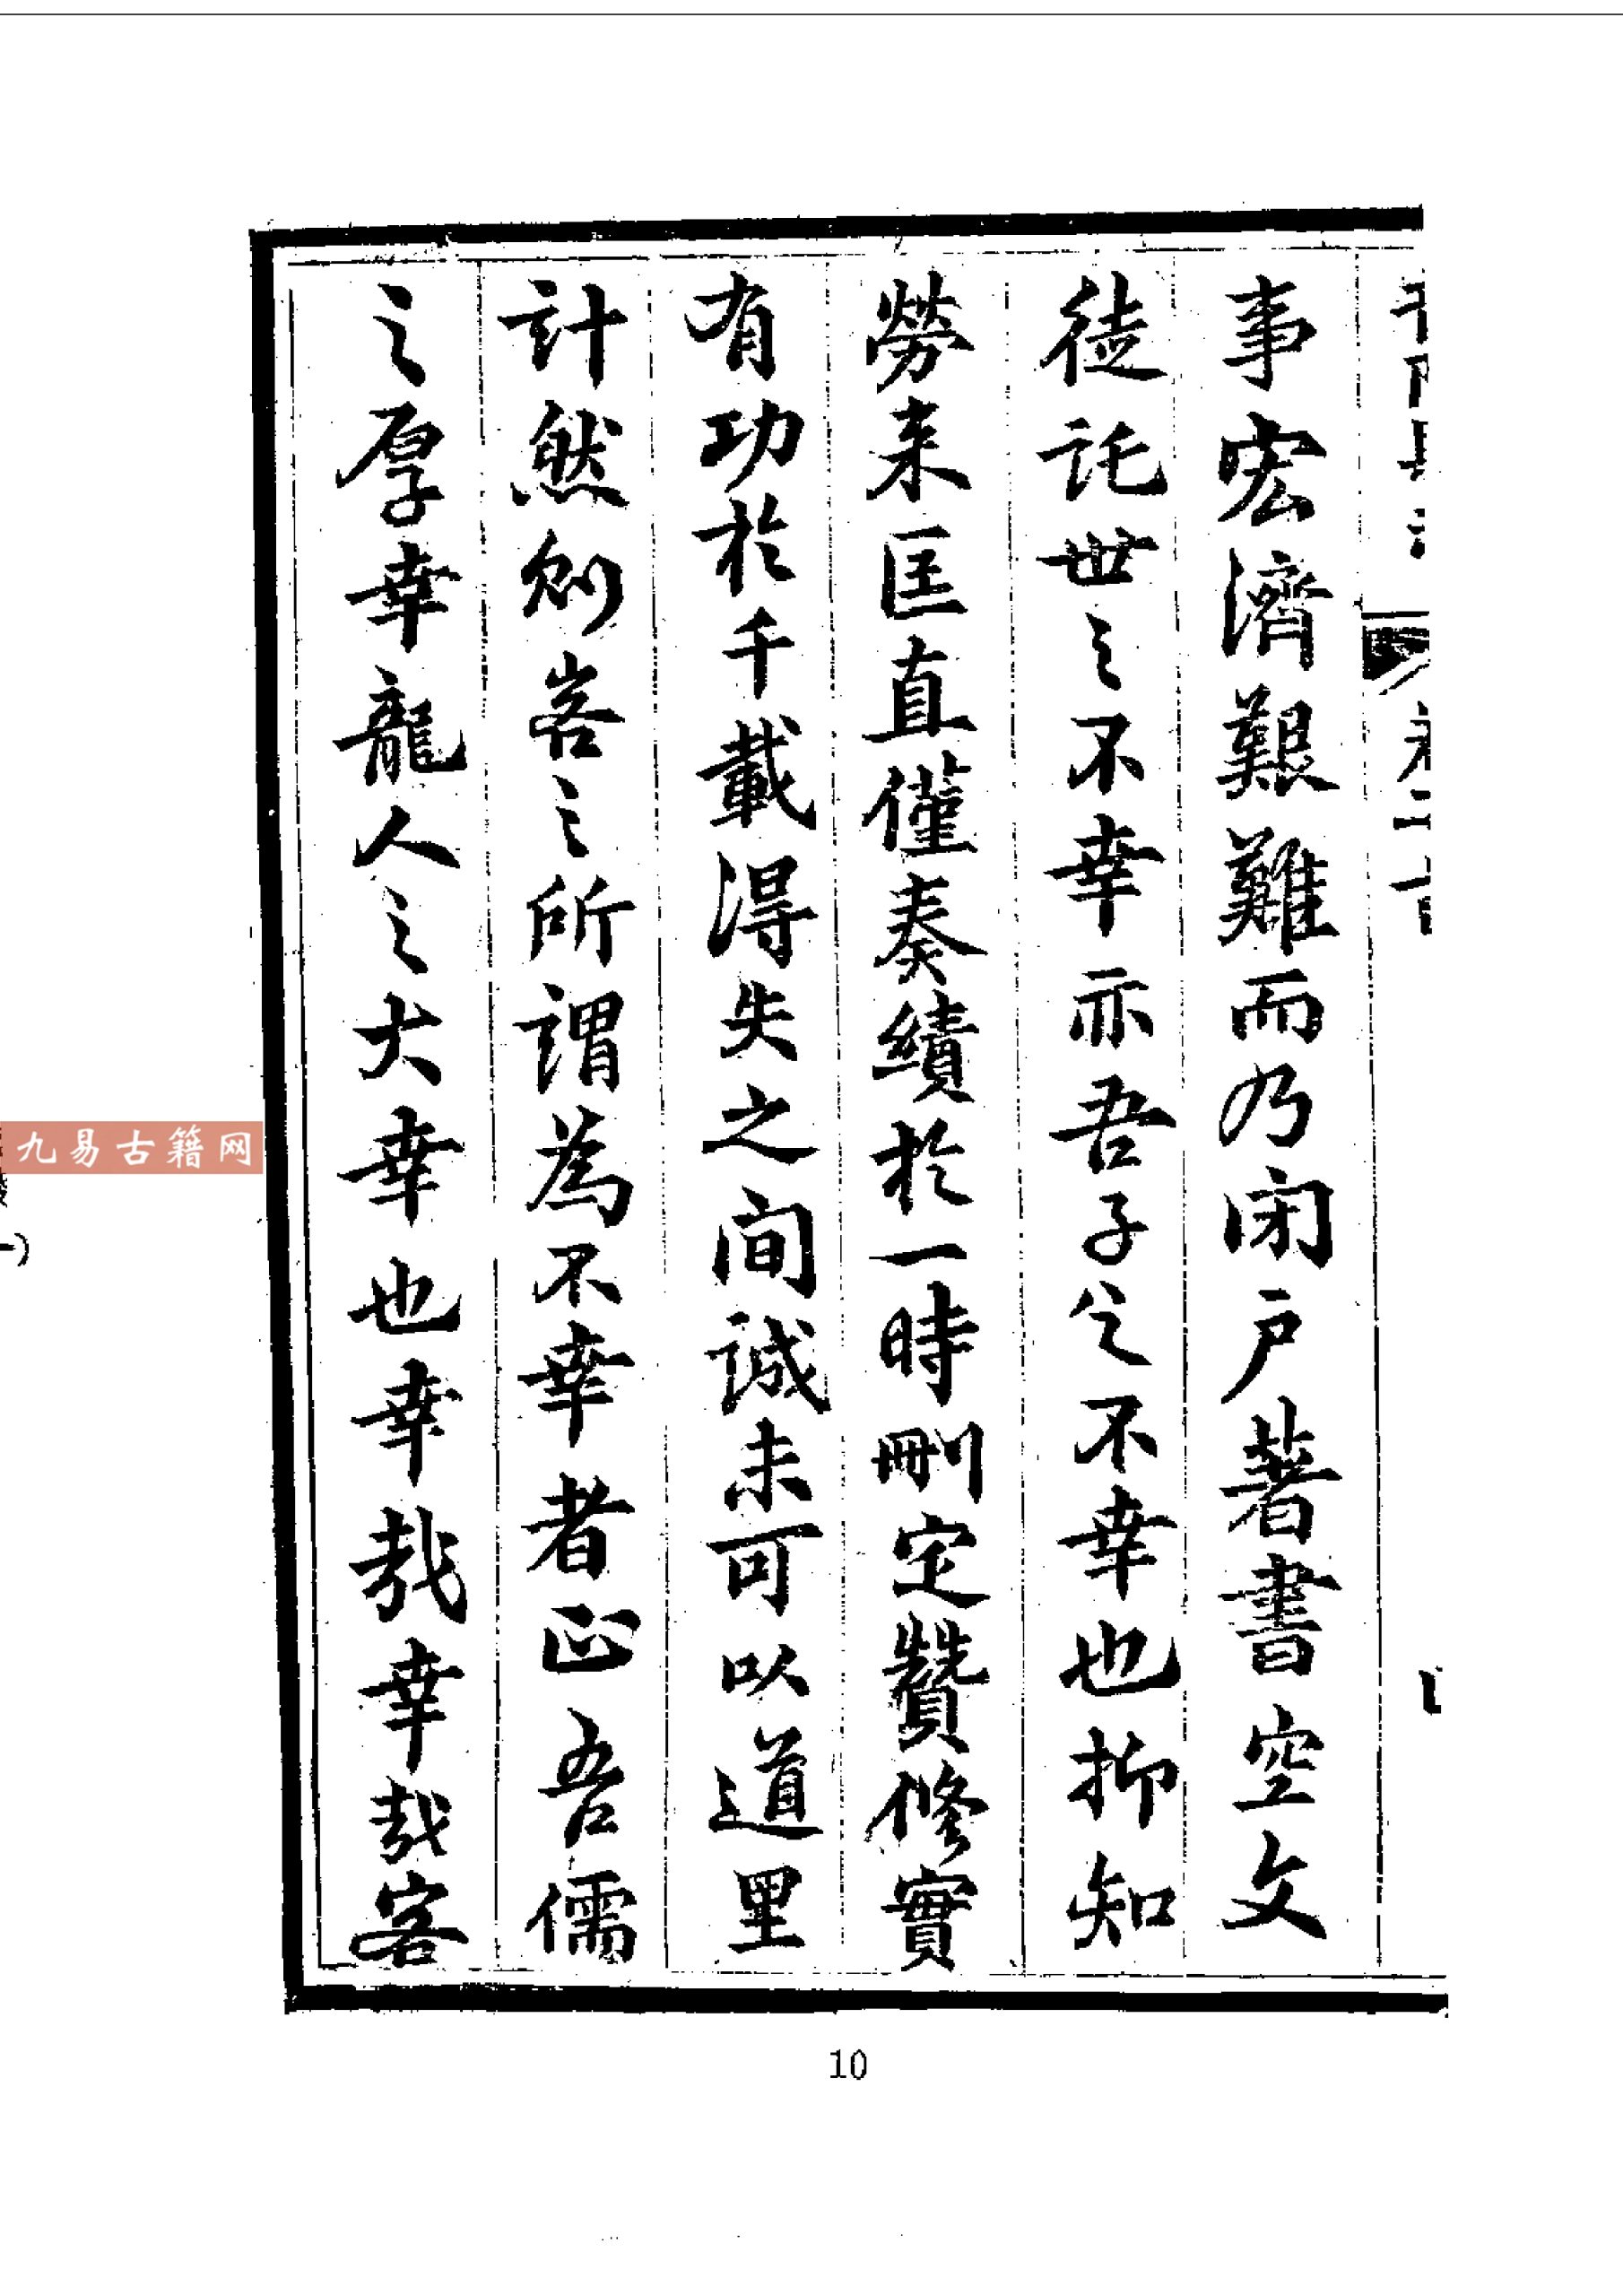 事宏濟艱難而乃闭户著書空文
徒託世之不幸亦吾子之不幸也抑知
勞来匡直僅奏績於一時刪定贊修實
有功於千載得失之間誠未可以道里
計然則客之所謂為不幸者正吾儒
之厚幸龍人之大幸也幸哉幸哉客
九易古籍网
一)
10